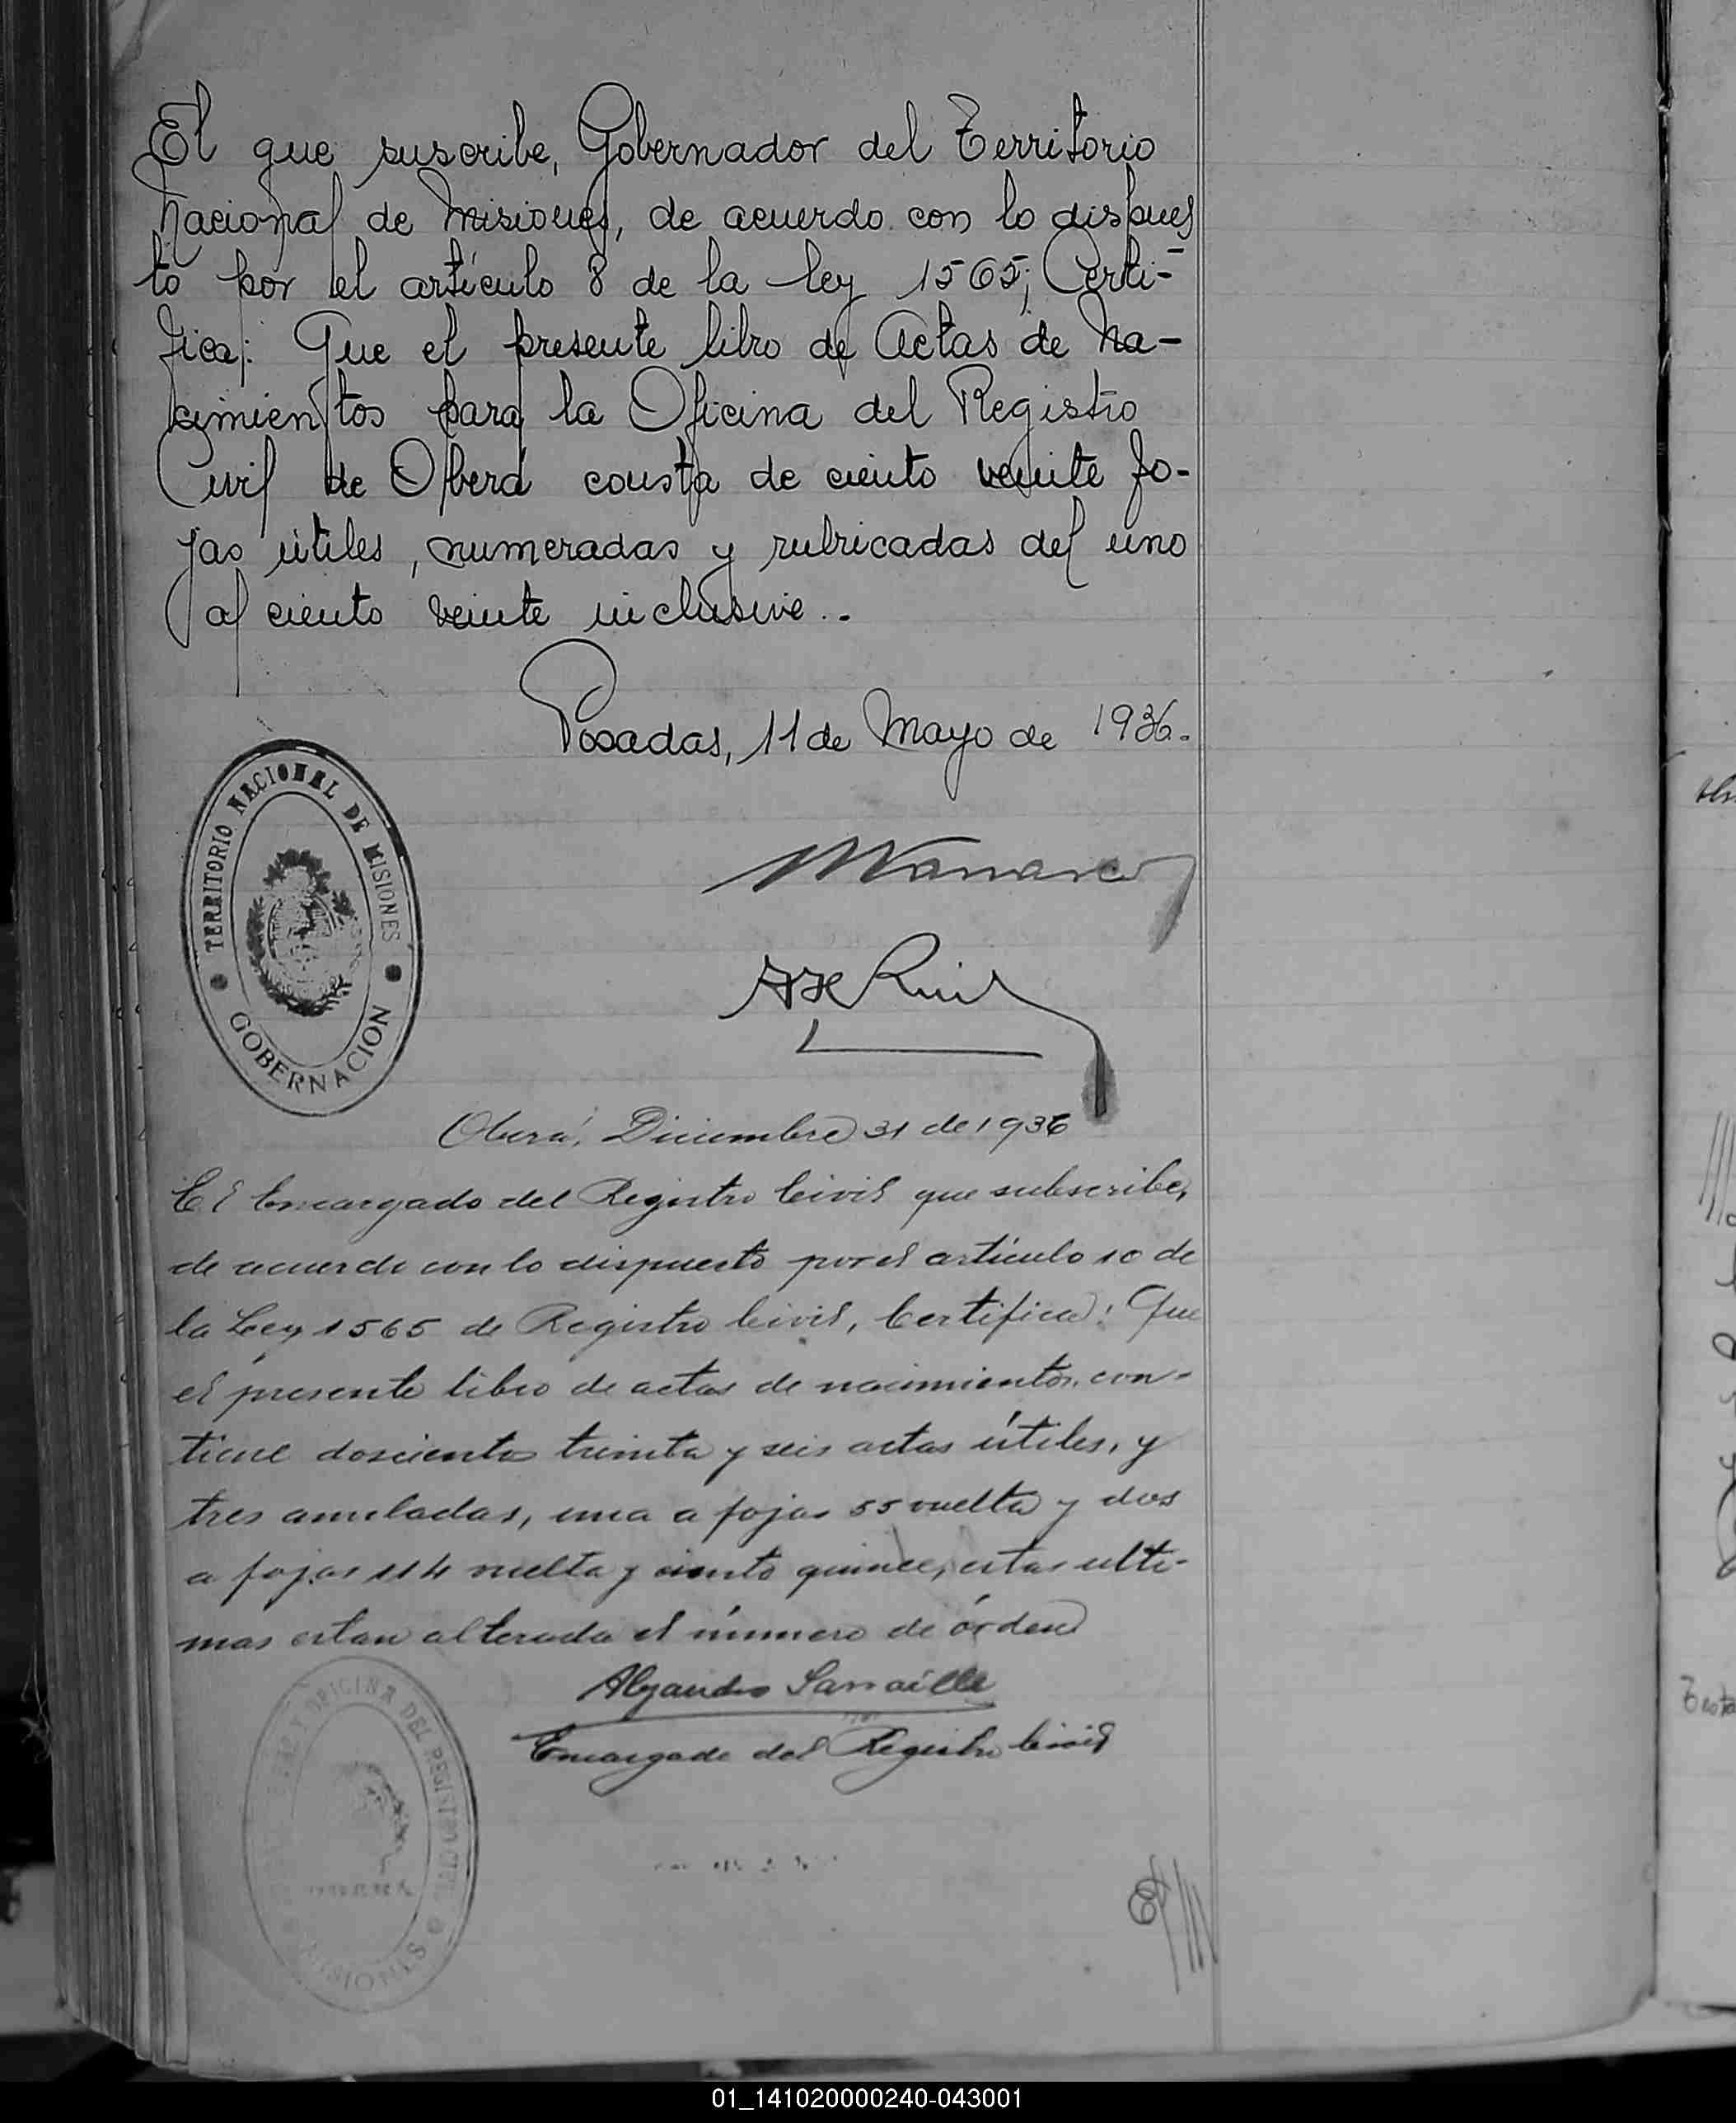 El que suscribe, Gobernador del Territorio
Nacional de Misiones, de acuerdo con lo dispues
to por el artículo 8 de la ley 1565; Certi-
fica: Que el presente libro de Actas de Na-
cimientos para la Oficina del Registro
Civil de Oberá consta de ciento veinte fo-
jas útiles, numeradas y rubricadas del uno
al ciento veinte inclusive..
Posadas, 11 de Mayo de 1936.
TERRITORIO NACIONAL DE MISIONES
GOBERNACION
Oberá, Diciembre 31 de 1936
El Encargado del Registro Civil que subscribe,
de acuerdo con lo dispuesto por el artículo 10 de
la Ley 1565 de Registro Civil, Certifica: Que
el presente libro de actas de nacimientos, con-
tiene doscienta treinta y seis actas útiles, y
tres anuladas, una a fojas 55 vuelta y dos
a fojas 114 vuelta y ciento quince, estas ulti-
mas estan alterada el número de órden
Alejandro Sarraille
Encargado del Registro Civil
OFICINA DEL REGISTRO CIVIL
MISIONES
01_141020000240-043001